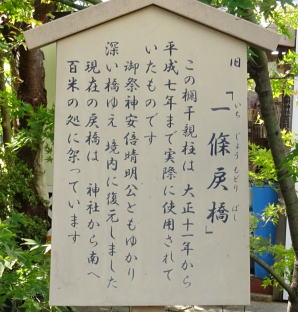 旧「一條戻橋」
いちじょうもどりばし
この欄干親柱は 大正十一年から
平成七年まで実際に使用されて
いたものです
御祭神安倍晴明公ともゆかり
深い橋ゆえ 境内に復元しました
現在の戻橋は 神社から南へ
百米の処に架っています